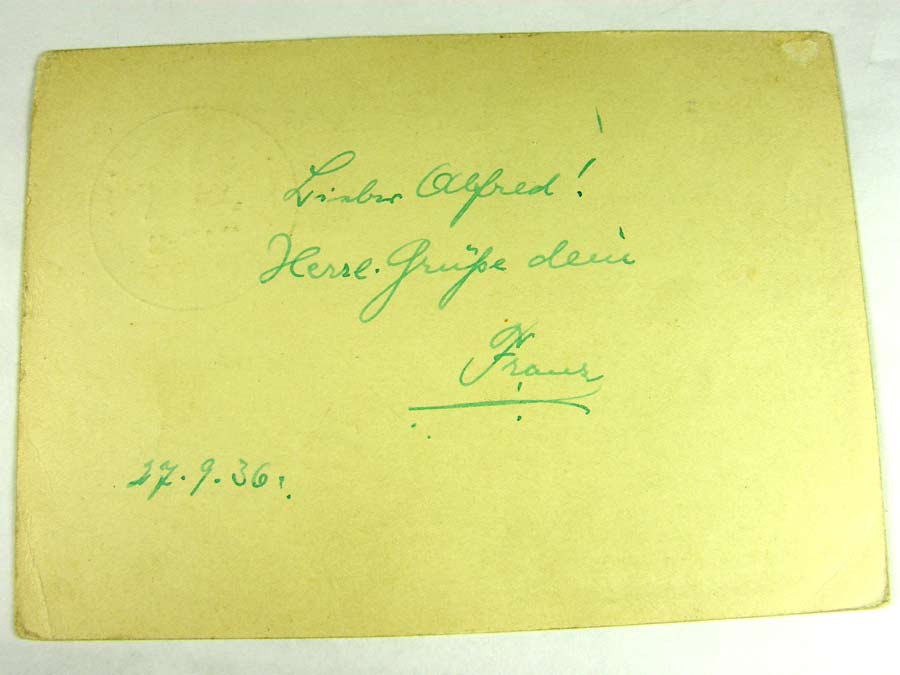 Lieber Alfred!
Herzl. Grüße dein
Franz
27.9.36.